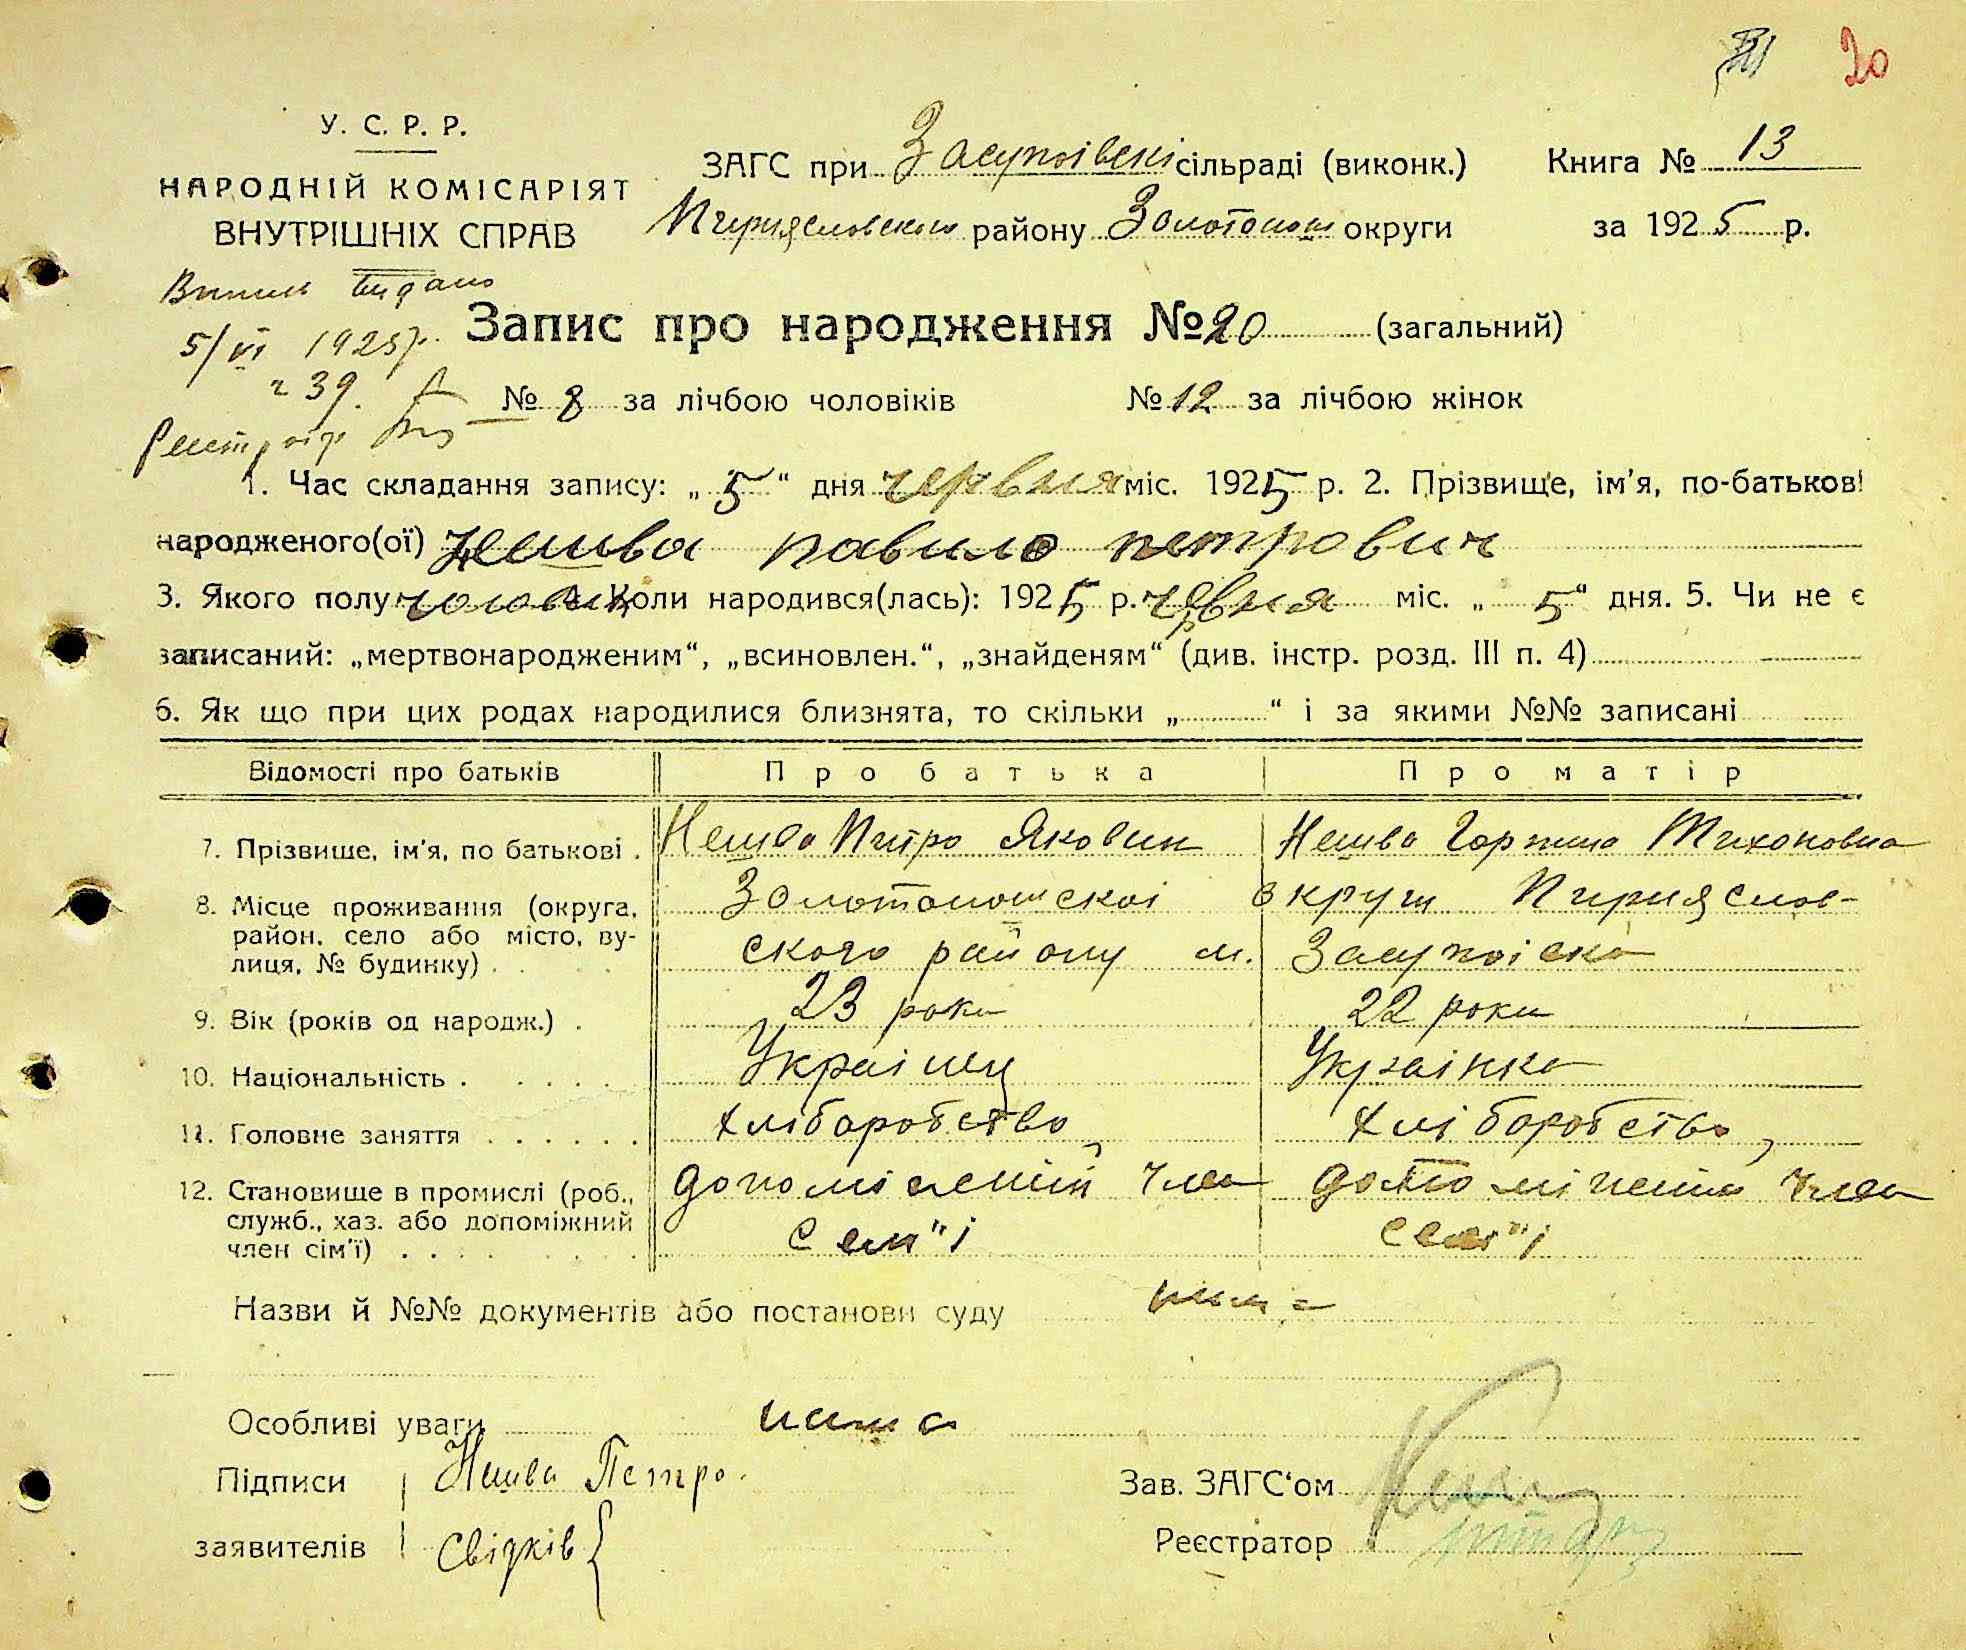 20
У. С. Р. Р.
НАРОДНІЙ КОМІСАРІЯТ
ВНУТРІШНІХ СПРАВ
ЗАГС при Засупоівскі сільраді (виконк.)
Книга № 13
Пчрияславского району Золотоношс округи
за 1925 р.
видано
5/VI 1925 р.
39.
Запис про народження № 20 (загальний)
№ 8 за лічбою чоловіків
№ 12 за лічбою жінок
1. Час складання запису: „ 5 “ дня червня міс. 1925 р. 2. Прізвище, ім'я, по-батькові
народженого(ої) Нешва Павило Петрович
3. Якого полу чоловік 4. Коли народився(лась): 1925 р. червня міс. „ 5 “ дня. 5. Чи не є
записаний: „мертвонародженим“, „всиновлен.“, „знайденям“ (див. інстр. розд. III п. 4)
6. Як що при цих родах народилися близнята, то скільки „ “ і за якими №№ записані
Відомості про батьків
Про батька
Про матір
7. Прізвище, ім'я, по батькові .
Нешва Питро Якович
Нешва Тихоновна
8. Місце проживання (округа, район, село або місто, вулиця, № будинку) .
Золотоношскоі округи Пирияслов-
ского району м. Засупоіска
9. Вік (років од народж.) .
23 роки
22 роки
10. Національність .
Украінец
Украінка
11. Головне заняття
хліборобство,
хліборобство,
12. Становище в промислі (роб., служб., хаз. або допоміжний член сім'ї)
допоміжний член
сем"і
допоміжний член
сем"і
Назви й №№ документів або постанови суду
Особливі уваги нима
Підписи
заявителів
Нешва Петро.
свідків {
Зав. ЗАГС‘ом
Реєстратор